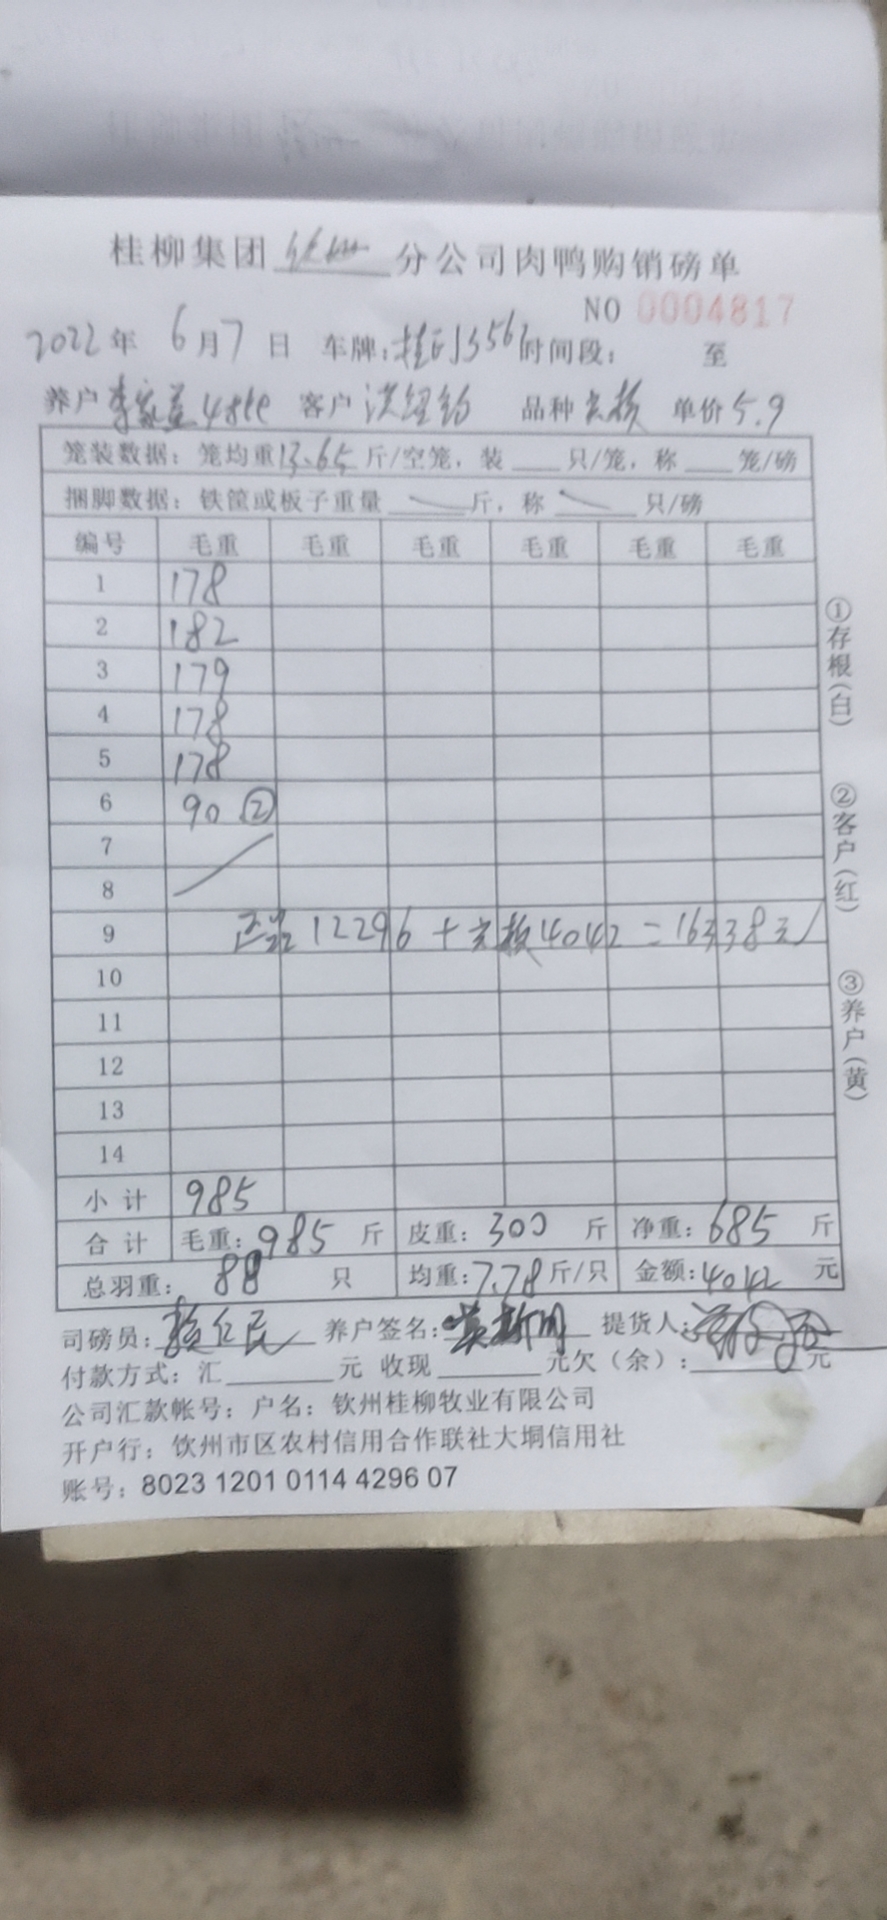 桂柳集团 分公司肉鸭购销磅单
NO 0004817
2022年 6月7日 车牌: 时间段: 至
养户 客户 品种 单价5.9
笼装数据: 笼均重13.65斤/空笼, 装 只/笼, 称 笼/磅
捆脚数据: 铁筐或板子重量 斤, 称 只/磅
编号 毛重 毛重 毛重 毛重 毛重 毛重
1 178
2 182
3 179
4 178
5 178
6 90 ②
7
8
9 正品12296+ 4042=16338元
10
11
12
13
14
小计 985
合计 毛重: 985 斤 皮重: 300 斤 净重: 685 斤
总羽重: 88 只 均重: 7.78斤/只 金额: 4042 元
司磅员: 养户签名: 提货人:
付款方式: 汇 元 收现 元欠(余): 元
公司汇款帐号: 户名: 钦州桂柳牧业有限公司
开户行: 钦州市区农村信用合作联社大垌信用社
账号: 8023 1201 0114 4296 07
①存根(白)
②客户(红)
③养户(黄)